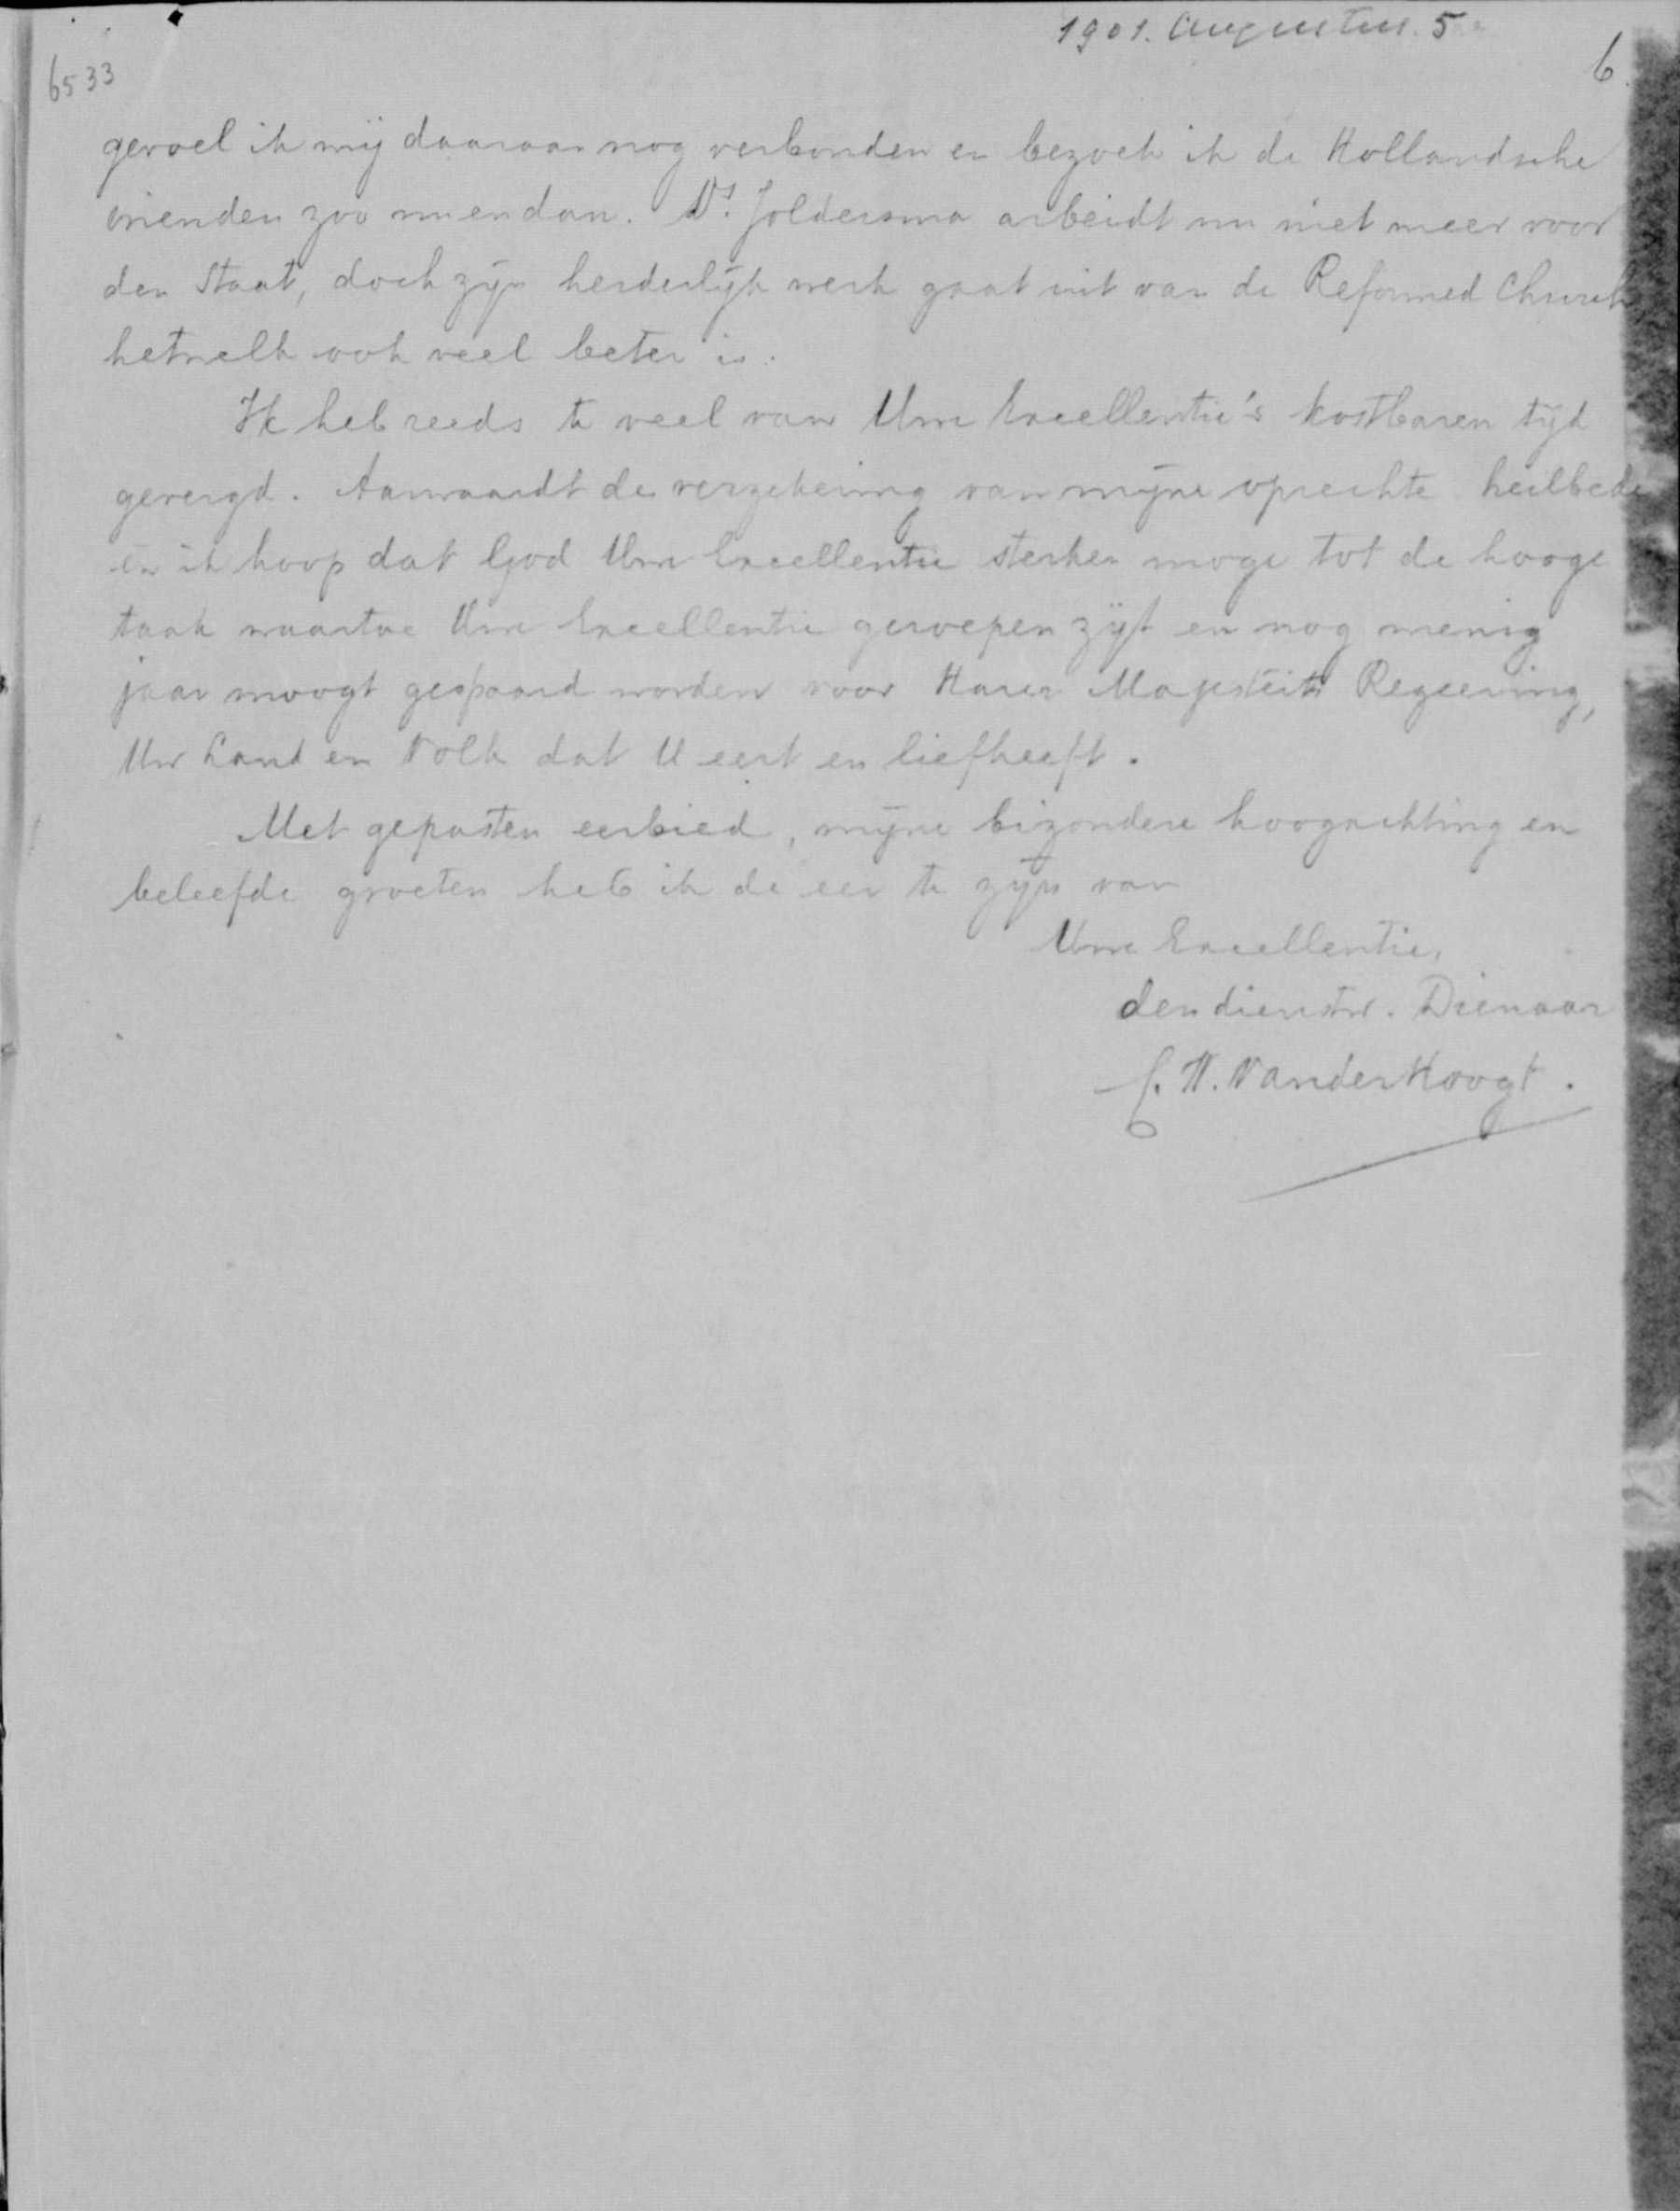 1901. Augustus. 5
6533
6.
gevoel ik mij daaraan nog verbonden en bezoek ik de Hollandsche
vrienden zoo nu en dan. Ds. Joldersma arbeidt nu niet meer voor
den Staat, doch zijn herderlijk werk gaat uit van de Reformed Church
hetwelk ook veel beter is.
Ik heb reeds te veel van Uwe Excellentie's kostbaren tijd
gevergd. Aanvaardt de verzekering van mijne oprechte heilbede
en ik hoop dat God Uwe Excellentie sterken moge tot de hooge
taak waartoe Uwe Excellentie geroepen zijt en nog menig
jaar moogt gespaard worden voor Harer Majesteits Regeering,
Uw Land en Volk dat U eert en liefheeft.
Met gepasten eerbied, mijne bizondere hoogachting en
beleefde groeten heb ik de eer te zijn van
Uwe Excellentie,
den dienstw. Dienaar
C. W. Vander Hoogt.